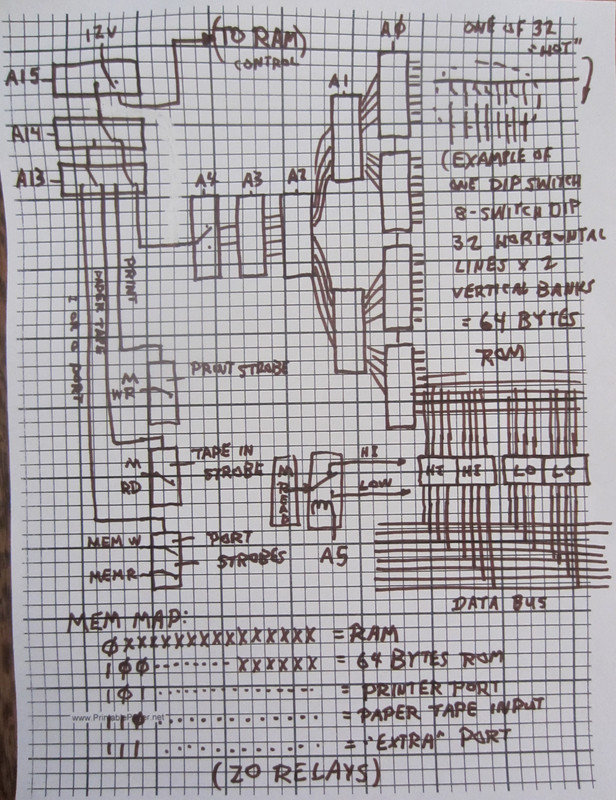 12V
(TO RAM)
CONTROL
A15
A14
A13
A4
A3
A2
A1
AØ
ONE OF 32
"HOT"
(EXAMPLE OF
ONE DIP SWITCH
8-SWITCH DIP
32 HORIZONTAL
LINES x 2
VERTICAL BANKS
= 64 BYTES
ROM
PRINT
PAPER TAPE
I OR O PORT
PRINT STROBE
M
WR
TAPE IN
STROBE
M
RD
MEM W
PORT
STROBES
MEMR
M READ
HI
LOW
A5
HI
HI
LO
LO
DATA BUS
MEM MAP:
ØXXXXXXXXXXXXXXX = RAM
1ØØ.......XXXXXX = 64 BYTES ROM
1Ø1............. = PRINTER PORT
11Ø............. = PAPER TAPE INPUT
www.PrintablePaper.net
111............. = "EXTRA" PORT
(20 RELAYS)